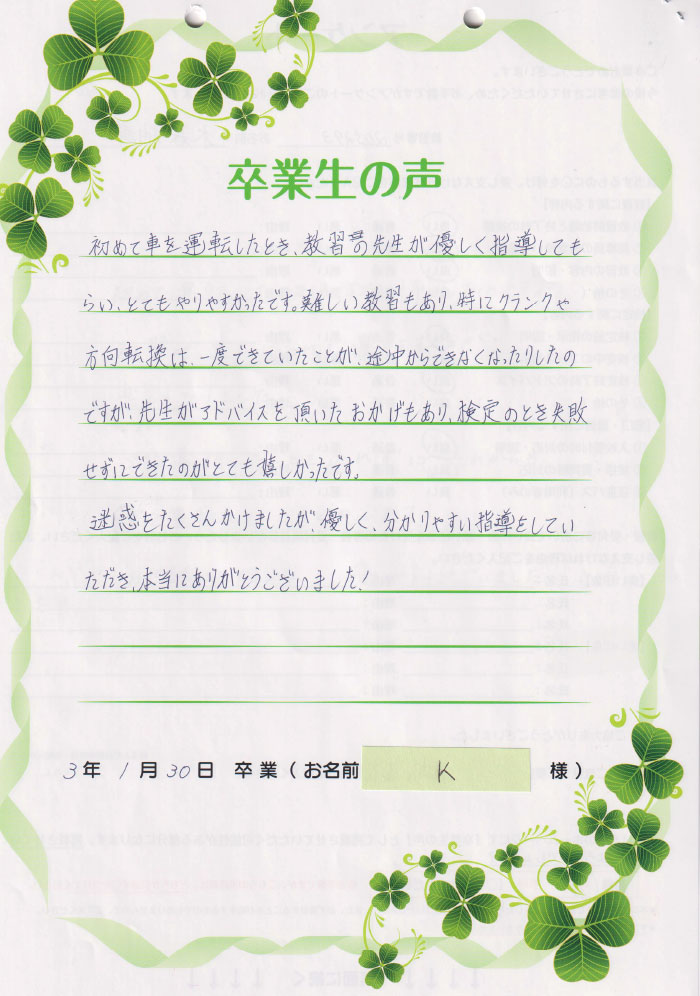 卒業生の声
初めて車を運転したとき、教習所の先生が優しく指導しても
らい、とてもやりやすかったです。難しい教習もあり、時にクランクや
方向転換は、一度できていたことが、途中からできなくなったりしたの
ですが、先生がアドバイスを頂いたおかげもあり、検定のとき失敗
せずにできたのがとても嬉しかったです。
迷惑をたくさんかけましたが、優しく、分かりやすい指導をしてい
ただき、本当にありがとうございました!
3年 1月30日 卒業(お名前 K 様)